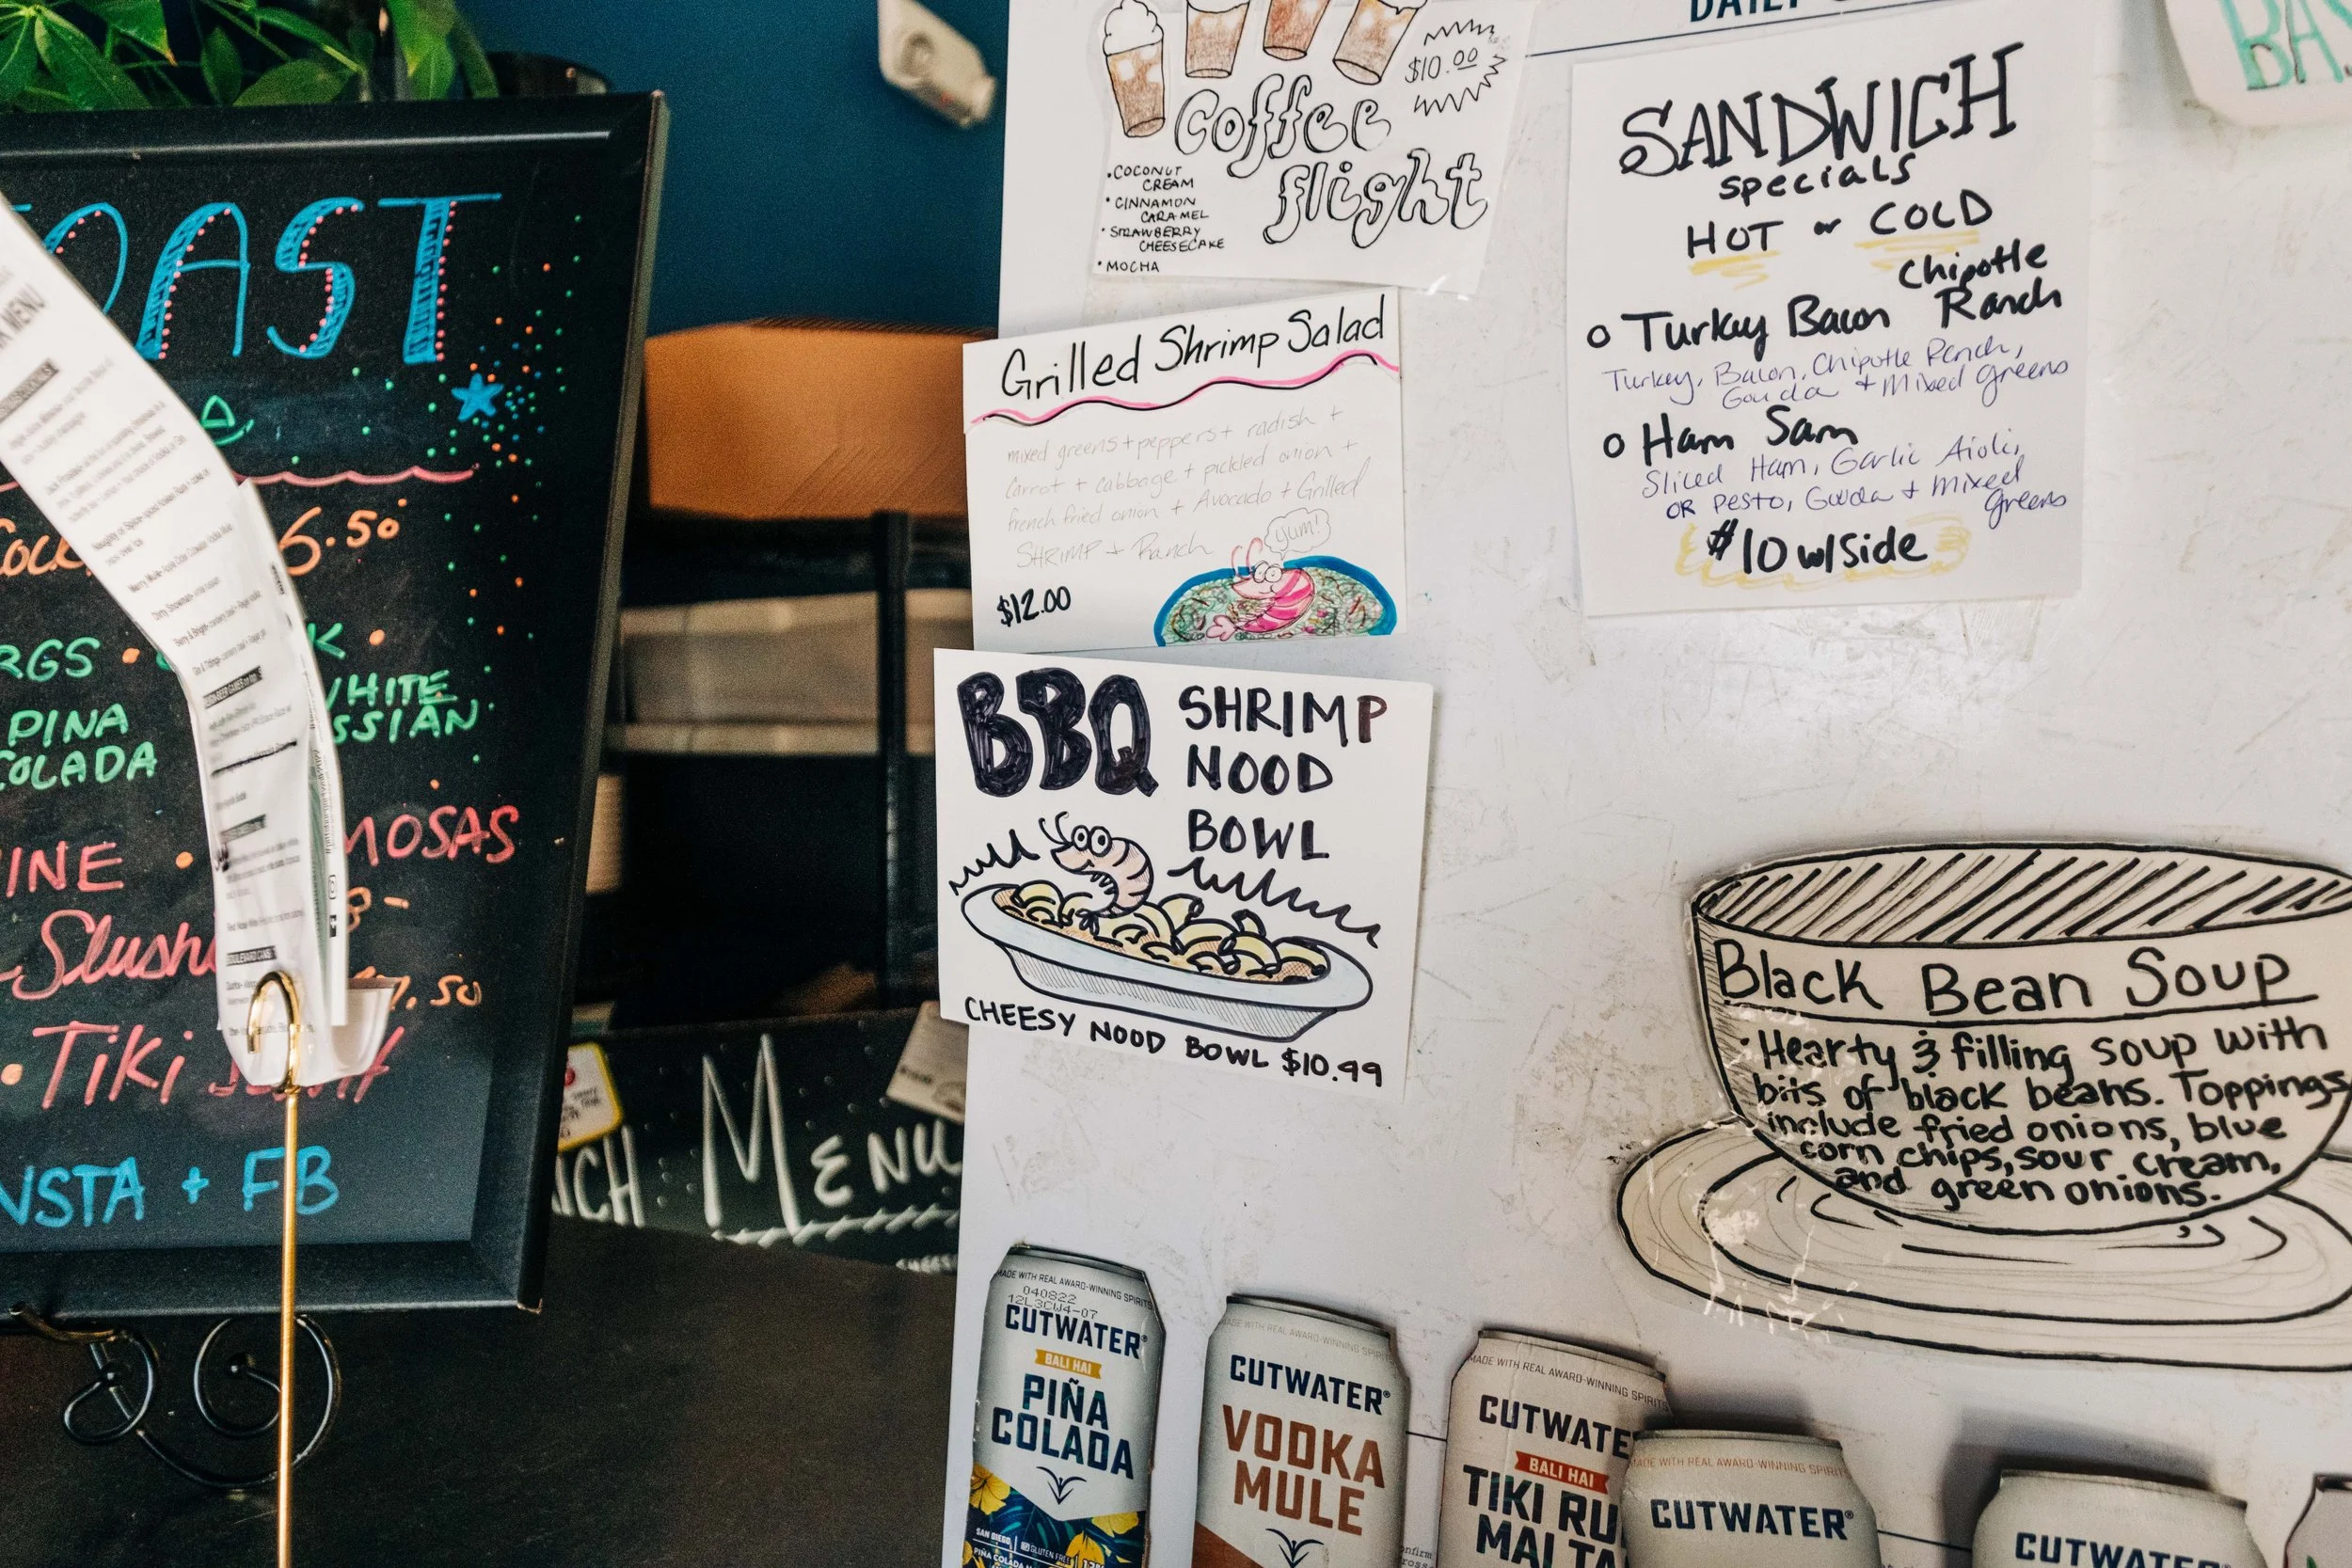 OAST
6.50
RGS •
PINA
COLADA
WHITE
SSIAN
INE •
MOSAS
Slush
8-
7.50
• Tiki
NSTA + FB
MENU
MENU
$10.00
Coffee
flight
• COCONUT
CREAM
• CINNAMON
CARAMEL
• STRAWBERRY
CHEESECAKE
• MOCHA
Grilled Shrimp Salad
mixed greens + peppers + radish +
carrot + cabbage + pickled onion +
french fried onion + Avocado + Grilled
SHRIMP + Ranch
yum!
$12.00
BBQ SHRIMP
NOOD
BOWL
CHEESY NOOD BOWL $10.99
DAILY
SANDWICH
specials
HOT or COLD
Chipotle
o Turkey Bacon Ranch
Turkey, Bacon, Chipotle Ranch,
Gouda + Mixed greens
o Ham Sam
Sliced Ham, Garlic Aioli,
OR PESTO, Gouda + Mixed
greens
$10 w/side
BA
Black Bean Soup
• Hearty & filling soup with
bits of black beans. Toppings
include fried onions, blue
corn chips, sour cream,
and green onions.
MADE WITH REAL AWARD-WINNING SPIRITS
040822
12L3CW4-07
CUTWATER®
BALI HAI
PIÑA
COLADA
SAN DIEGO
GLUTEN FREE
MADE WITH REAL AWARD-WINNING SPIRITS
CUTWATER®
VODKA
MULE
MADE WITH REAL AWARD-WINNING SPIRITS
CUTWATE
BALI HAI
TIKI RU
MAI TA
MADE WITH REAL AWARD-WINNING SPIRITS
CUTWATER®
CUTWATER